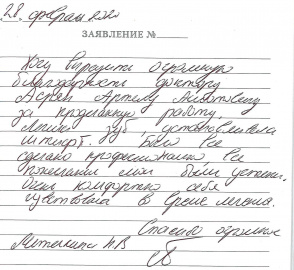 28 февраля 2020
ЗАЯВЛЕНИЕ №
Хочу выразить огромную
благодарность доктору
Артуру
за проделанную работу,
лечили зуб установила
имплант. Было все
сделано профессионально, все
пожелания мои были учтены.
Очень комфортно себя
чувствовала в время лечения.
Спасибо огромное